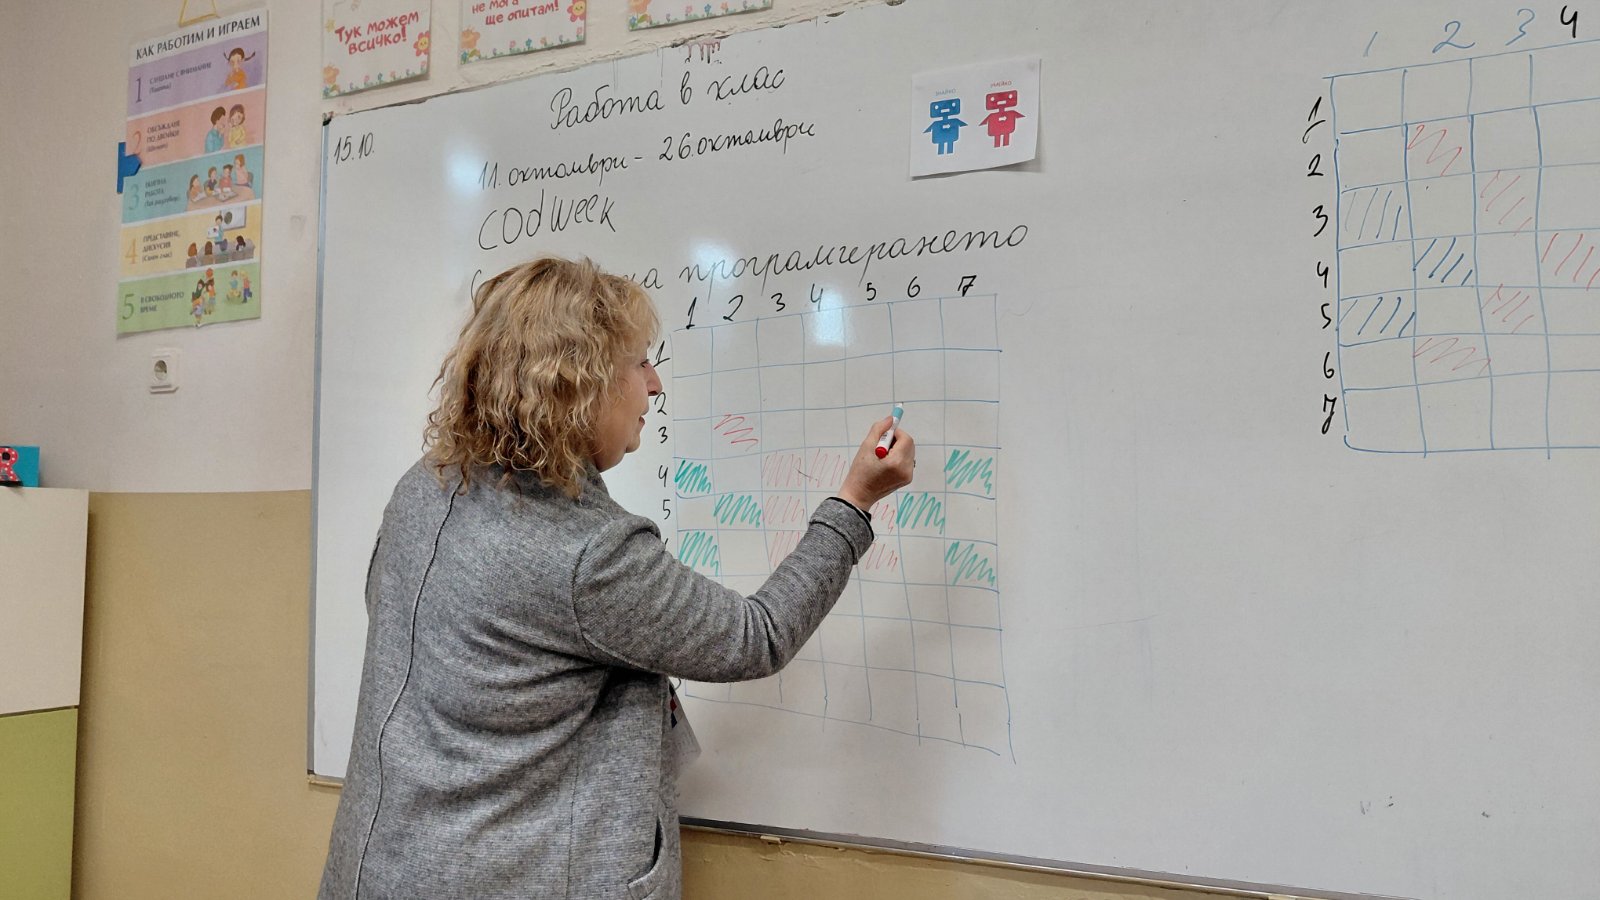 КАК РАБОТИМ И ИГРАЕМ
1 СЛУШАНЕ С ВНИМАНИЕ
(Тишина)
2 ОБСЪЖДАНЕ
ПО ДВОЙКИ
(Шепот)
3 ЕКИПНА
РАБОТА
4 ПРЕДСТАВЯНЕ,
ДИСКУСИЯ
(Силен глас)
5 В СВОБОДНОТО
ВРЕМЕ
Тук можем
всичко!
не мога
ще опитам!
Работа в клас
15.10.
11. октомври - 26. октомври
CodWeek
на програмирането
ЗНАЙКО УМЕЙКО
1 2 3 4 5 6 7
1
2
3
4
5
1 2 3 4
1
2
3
4
5
6
7